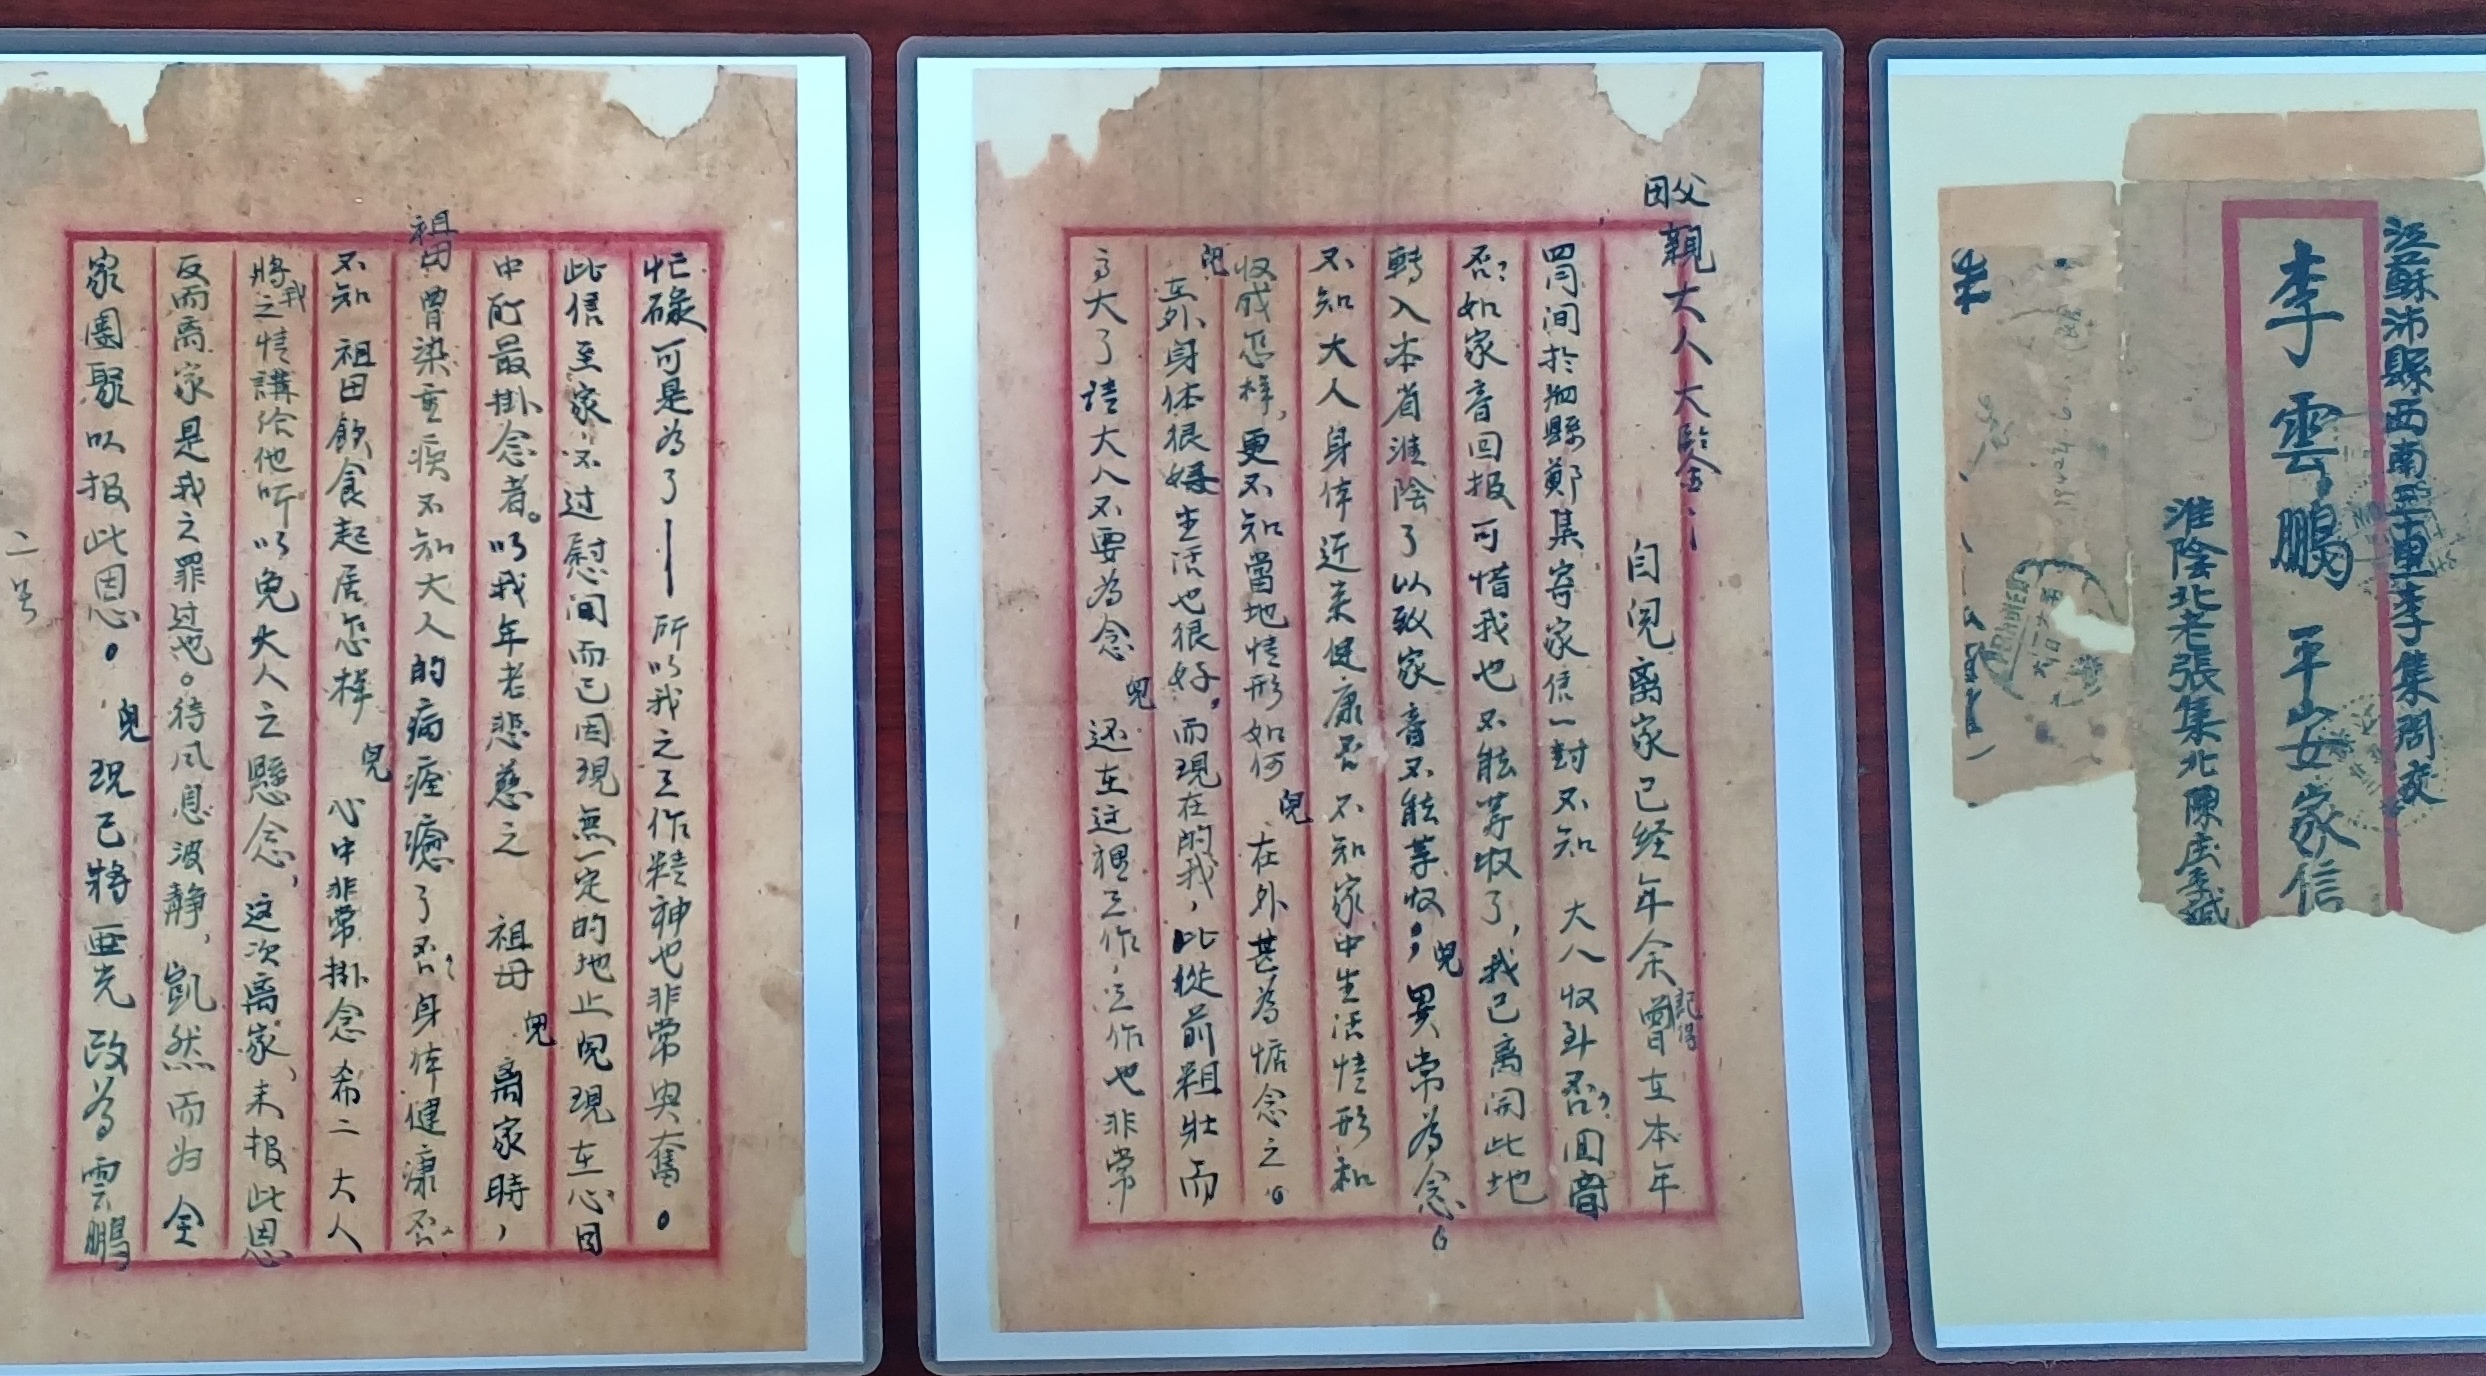 江蘇沛縣西南五十里李集閣交
李雲鵬 平安家信
淮陰北老張集北陳庄李緘
父母
親大人大鑒：
自兒离家已经年余記得曾在本年
四月间於泗縣鄭集寄家信一封不知 大人收到否？回音
否？如家音回报可惜我也不能等收了，我已离開此地
轉入本省淮陰了以致家音不能等收；兒異常为念。
不知大人身体近来健康否 不知家中生活情形和
收成怎样，更不知當地情形如何 兒在外甚為惦念之。
兒在外身体很好生活也很好。而現在的我，比從前粗壮而
高大了請大人不要為念 兒还在这裡工作，工作也非常
忙碌可是为了——所以我之工作精神也非常兴奮。
此信至家不过慰问而已因現無一定的地止兒現在心目
中所最掛念者。以我年老悲慈之 祖母 兒离家時，
祖母曾染重疾不知大人的病症癒了否？身体健康否？
不知 祖母飲食起居怎样 兒心中非常掛念希二大人
將我之情講给他听以免大人之懸念，这次离家，未报此恩
反而离家是我之罪过也。待风息波静，凱然而归全
家團聚以报此恩。 兒現已將亜光改为雲鵬
二号